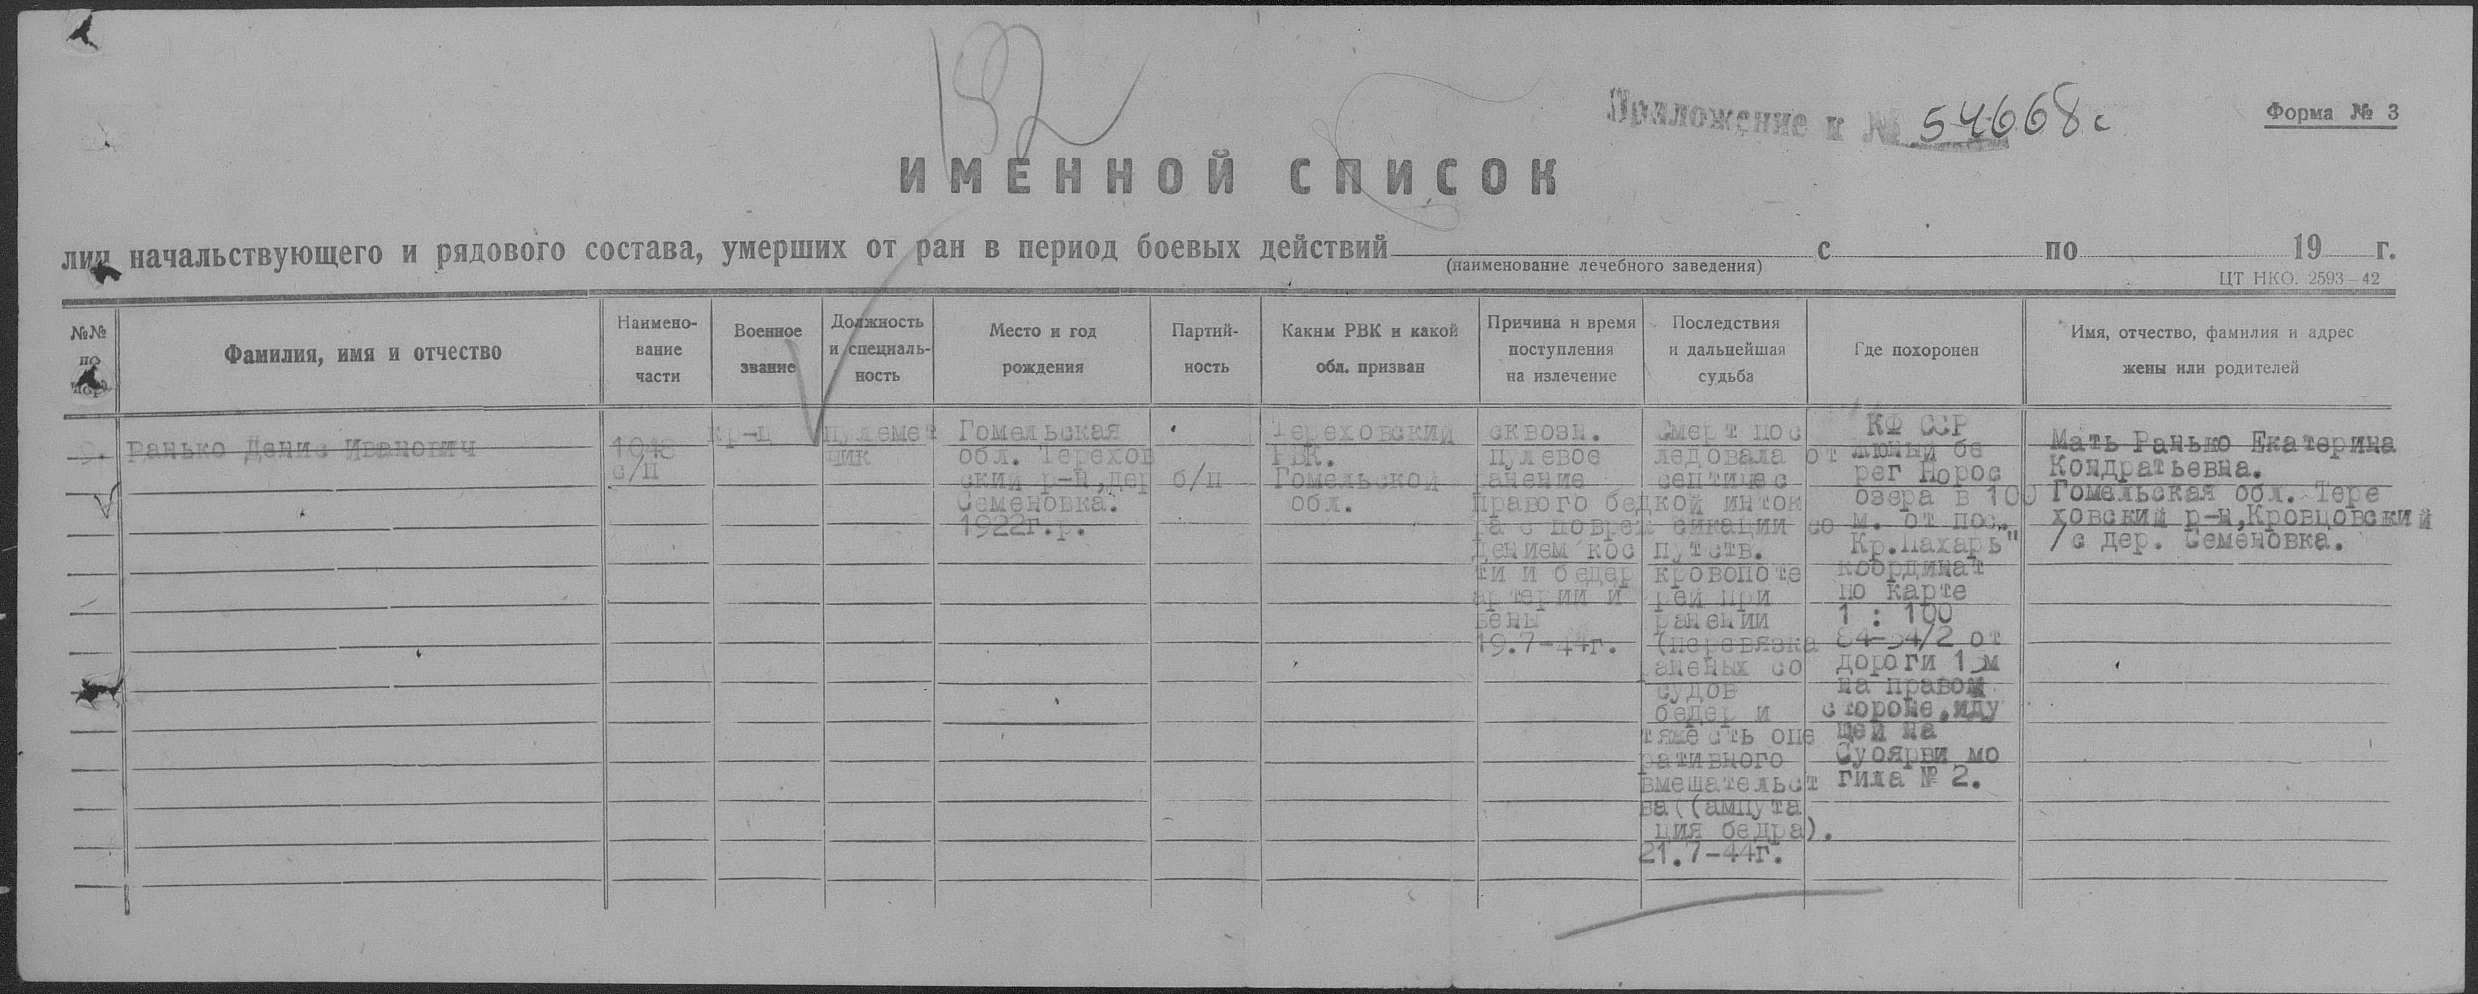 192
Приложение к № 54668с
Форма № 3
ИМЕННОЙ СПИСОК
лиц начальствующего и рядового состава, умерших от ран в период боевых действий с по 19 г.
(наименование лечебного заведения)
ЦТ НКО. 2593—42
№№
по
пор.
Фамилия, имя и отчество
Наимено-
вание
части
Военное
звание
Должность
и специаль-
ность
Место и год
рождения
Партий-
ность
Каким РВК и какой
обл. призван
Причина и время
поступления
на излечение
Последствия
и дальнейшая
судьба
Где похоронен
Имя, отчество, фамилия и адрес
жены или родителей
9.
Ранько Денис Иванович
1048
с/п
кр-ц
пулемет
щик
Гомельская
обл. Терехов
ский р-н, дер
Семеновка.
1922г.р.
б/п
Тереховский
РВК.
Гомельской
обл.
сквозн.
пулевое
ранение
правого бед
ра с повреж
дением кос
ти и бедер
артерии и
вены
19.7-44г.
Смерт пос
ледовала от
септичес
кой инток
сикации со
путств.
кровопоте
рей при
ранении
(перевязка
раненых со
судов
бедер и
тяжесть опе
ративного
вмешательст
ва((ампута
ция бедра).
21.7-44г.
КФ ССР
южный бе
рег Норос
озера в 100
м. от пос.
Кр.Пахарь"
координат
по карте
1 : 100
84-54/2 от
дороги 15м
на правом
стороне,иду
щей на
Суоярви мо
гила № 2.
Мать Ранько Екатерина
Кондратьевна.
Гомельская обл. Тере
ховский р-н,Кровцовский
/с дер. Семеновка.